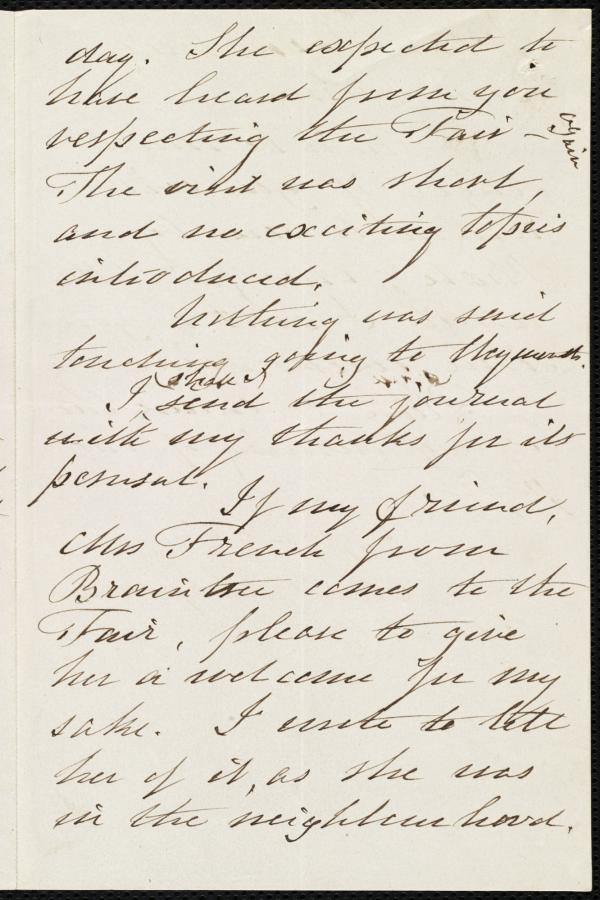 day. She expected to
have heard from you
respecting the Fair – again
The visit was short,
and no exciting topics
introduced.
Nothing was said
touching going to Weymouth.
I shall send the journal
with my thanks for its
perusal.
If my friend,
Mrs French from
Braintree comes to the
Fair, please to give
her a welcome for my
sake. I wrote to tell
her of it, as she was
in the neighbourhood.